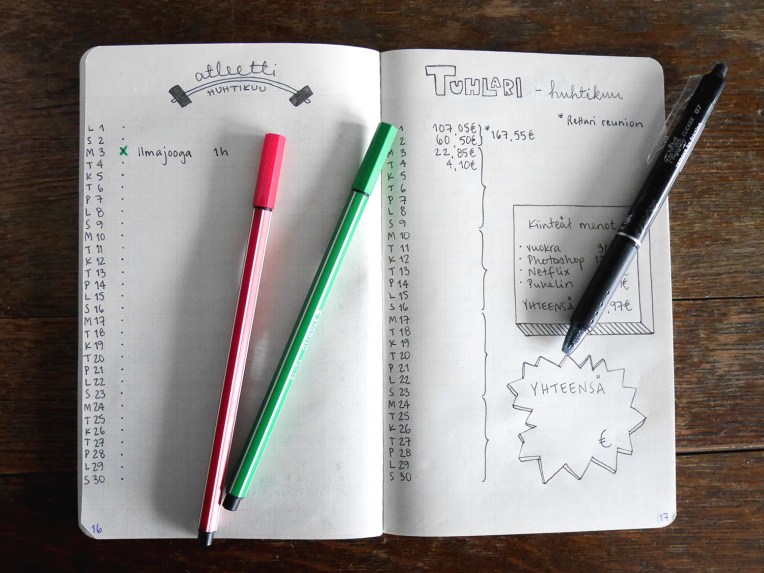 atleetti
HUHTIKUU
L 1
S 2
M 3 x Ilmajooga 1h
T 4
K 5
T 6
P 7
L 8
S 9
M 10
T 11
K 12
T 13
P 14
L 15
S 16
M 17
T 18
K 19
T 20
P 21
L 22
S 23
M 24
T 25
K 26
T 27
P 28
L 29
S 30
16
TUHLARI - huhtikuu
* Reffari reunion
L 1 107,05€
S 2 60,50€ *167,55€
M 3 22,85€
T 4 4,10€
K 5
T 6
P 7
L 8
S 9
M 10
T 11
K 12
T 13
P 14
L 15
S 16
M 17
T 18
K 19
T 20
P 21
L 22
S 23
M 24
T 25
K 26
T 27
P 28
L 29
S 30
Kiinteät menot
· vuokra
· Photoshop
· Netflix
· Puhelin
YHTEENSÄ ,97€
YHTEENSÄ
€
17